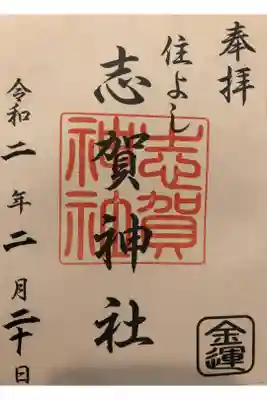 奉拝
住よし
志賀神社
志賀
神社
令和二年二月二十日
金運